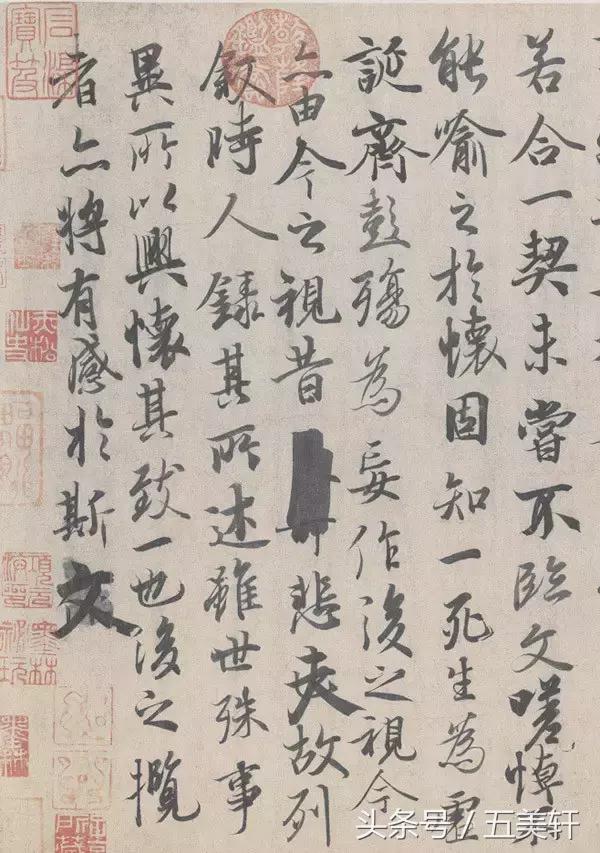 若合一契未嘗不臨文嗟悼不
能喻之於懷固知一死生為虛
誕齊彭殤為妄作後之視今
亦由今之視昔悲夫故列
敘時人錄其所述雖世殊事
異所以興懷其致一也後之攬
者亦將有感於斯文
头条号 / 五美轩